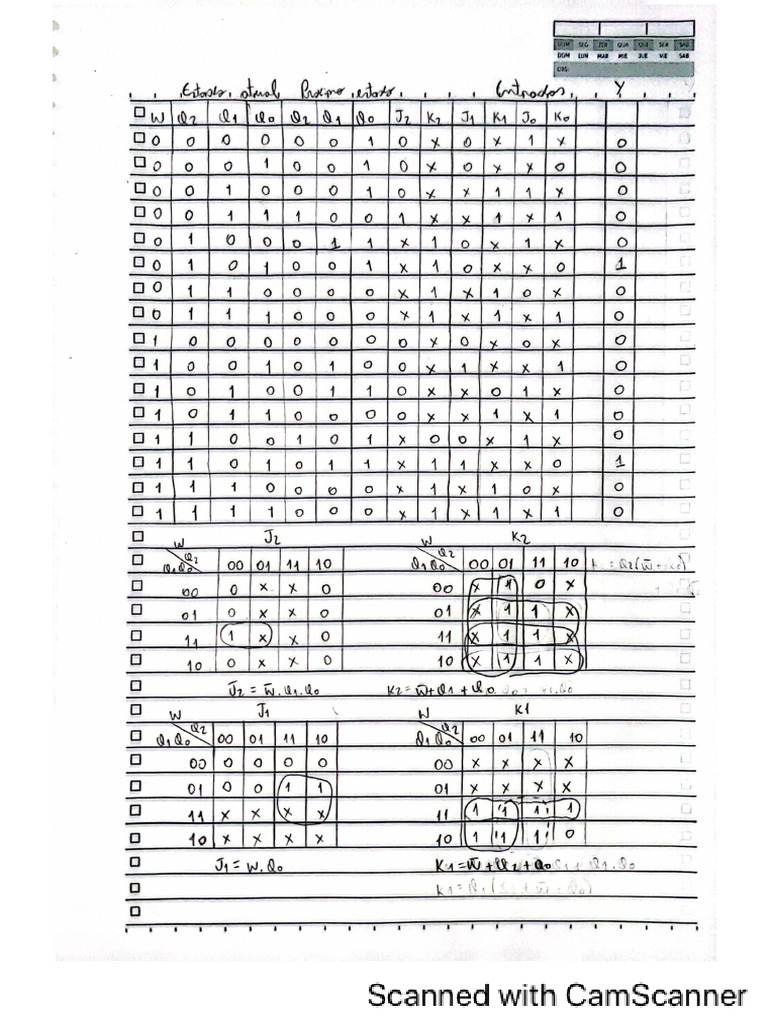 DOM SEG TER QUA QUI SEX SAB
DOM LUN MAR MIE JUE VIE SAB
OBS:
Estado atual Proximo estado Entradas Y
W Q2 Q1 Q0 Q2 Q1 Q0 J2 K2 J1 K1 J0 K0
0 0 0 0 0 0 1 0 x 0 x 1 x 0
0 0 0 1 0 0 1 0 x 0 x x 0 0
0 0 1 0 0 0 1 0 x x 1 1 x 0
0 0 1 1 1 0 0 1 x x 1 x 1 0
0 1 0 0 0 1 1 x 1 0 x 1 x 0
0 1 0 1 0 0 1 x 1 0 x x 0 1
0 1 1 0 0 0 0 x 1 x 1 0 x 0
0 1 1 1 0 0 0 x 1 x 1 x 1 0
1 0 0 0 0 0 0 0 x 0 x 0 x 0
1 0 0 1 0 1 0 0 x 1 x x 1 0
1 0 1 0 0 1 1 0 x x 0 1 x 0
1 0 1 1 0 0 0 0 x x 1 x 1 0
1 1 0 0 1 0 1 x 0 0 x 1 x 0
1 1 0 1 0 1 1 x 1 1 x x 0 1
1 1 1 0 0 0 0 x 1 x 1 0 x 0
1 1 1 1 0 0 0 x 1 x 1 x 1 0
J2 K2
W Q2 W Q2
Q1Q0 00 01 11 10 Q1Q0 00 01 11 10
00 0 x x 0 00 x 1 0 x
01 0 x x 0 01 x 1 1 x
11 1 x x 0 11 x 1 1 x
10 0 x x 0 10 x 1 1 x
J2 = W̅.Q1.Q0 K2 = W̅+Q1+Q0
J1 K1
W Q2 W Q2
Q1Q0 00 01 11 10 Q1Q0 00 01 11 10
00 0 0 0 0 00 x x x x
01 0 0 1 1 01 x x x x
11 x x x x 11 1 1 1 1
10 x x x x 10 1 1 1 0
J1 = W.Q0 K1 = W̅+Q2+Q0
Scanned with CamScanner